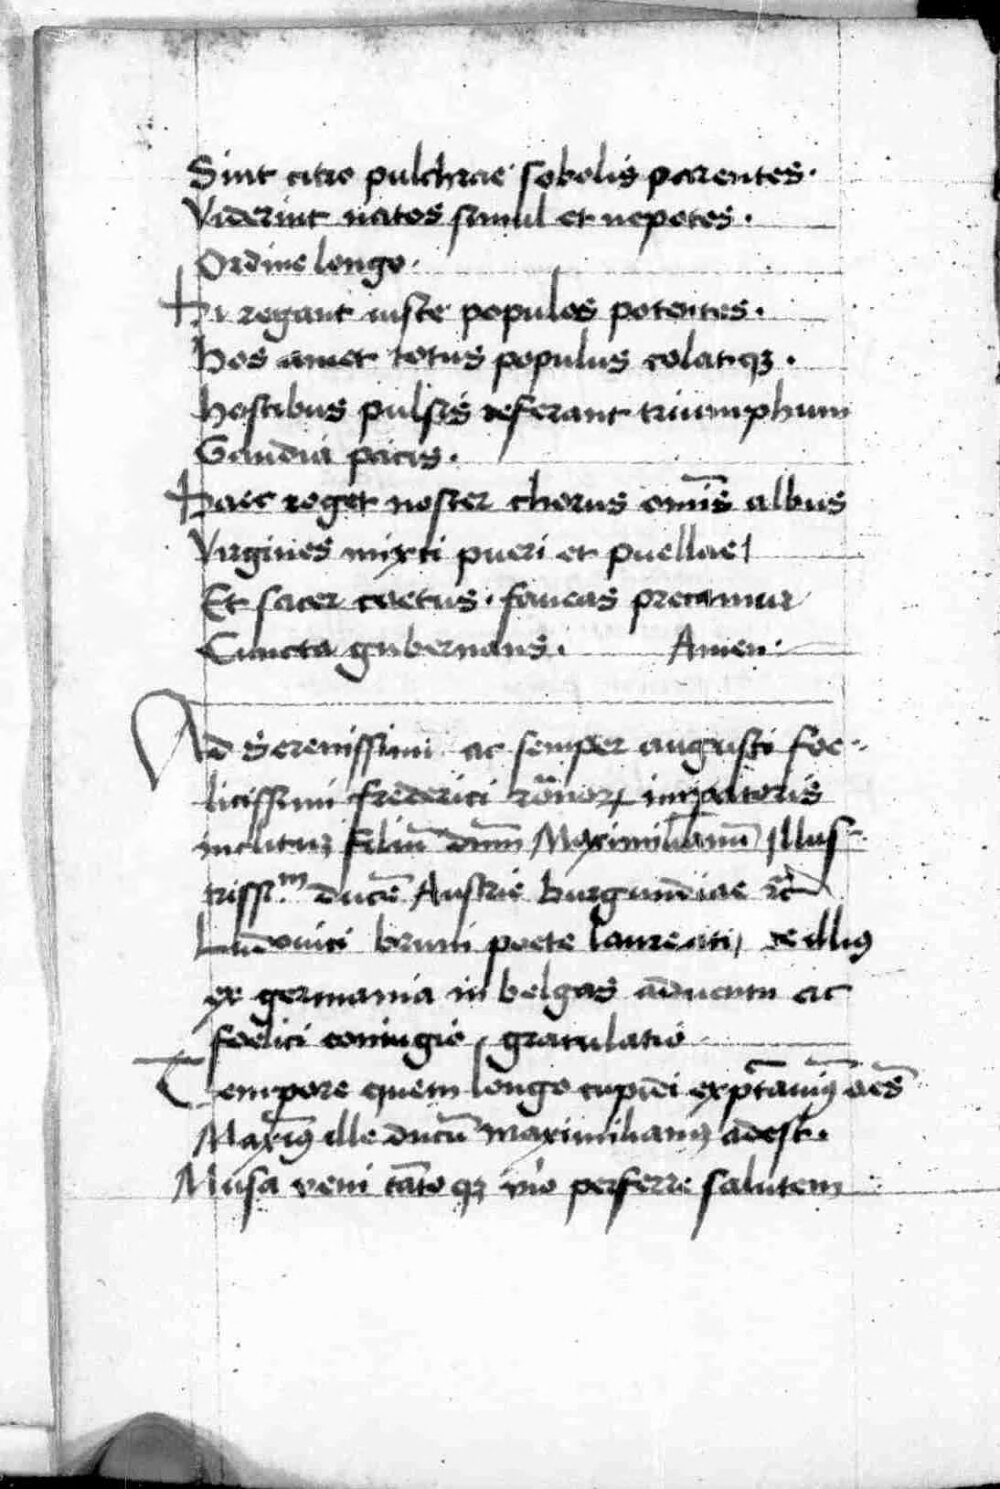 Sint citio pulchrae sobolis parentes.
Viderint natos simul et nepotes.
Ordine longo.
Hi regant iuste populos potentes.
Hos amet totus populus colatqꝫ.
hostibus pulsis referant triumphum
Gaudia pacis.
Haec roget noster chorus om̄is albus
Virgines mixti pueri et puellae/
Et sacer coetus. faueas precamur
Cuncta gubernans. Amen.
Ad Serenissimi ac semper augusti foe-
licissimi frederici rōnoꝝ impatoris
inclitūꝫ filiū dnm̄ Maximilianū Illus-
trissi.ᵐ ducē Austrie burgundiae ⁊c̄
Ludouici bruni poete laureati, de illiꝰ
ex germania in belgas aduentu ac
foelici coniugio, gratulatio
Tempore quem longo cupiēi exp̄tauimꝰ oēs
Maxīꝰ ille ducū maximilianꝰ adest.
Musa veni tāto qꝫ viro perferre salutem